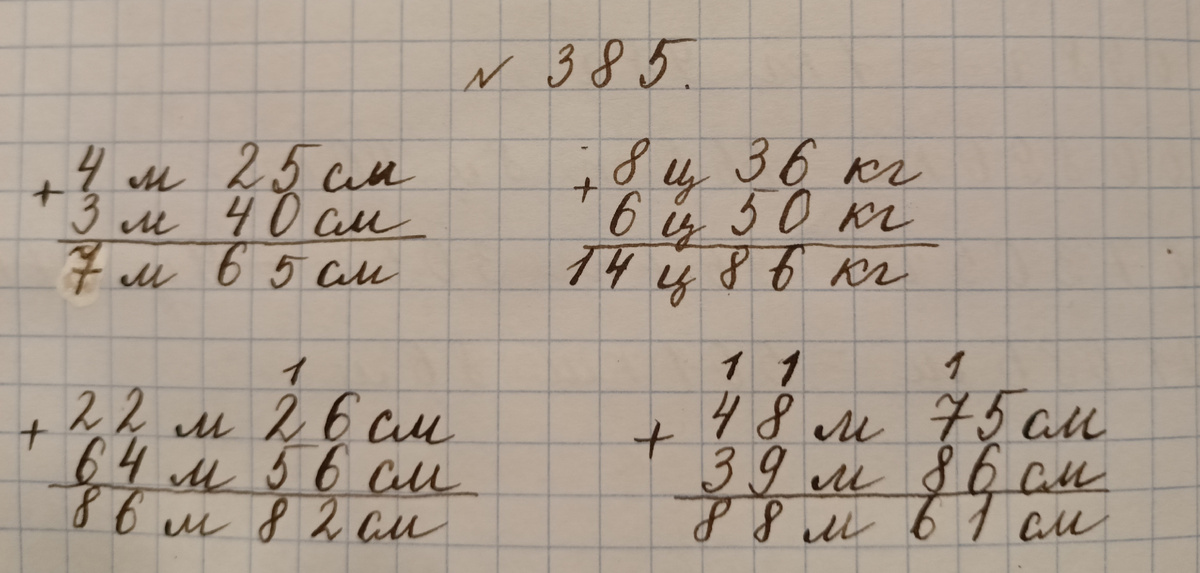 № 385.
+ 4 м 25 см
3 м 40 см
7 м 65 см
+ 8 ц 36 кг
6 ц 50 кг
14 ц 86 кг
1
+ 22 м 26 см
64 м 56 см
86 м 82 см
1 1 1
+ 48 м 75 см
39 м 86 см
88 м 61 см